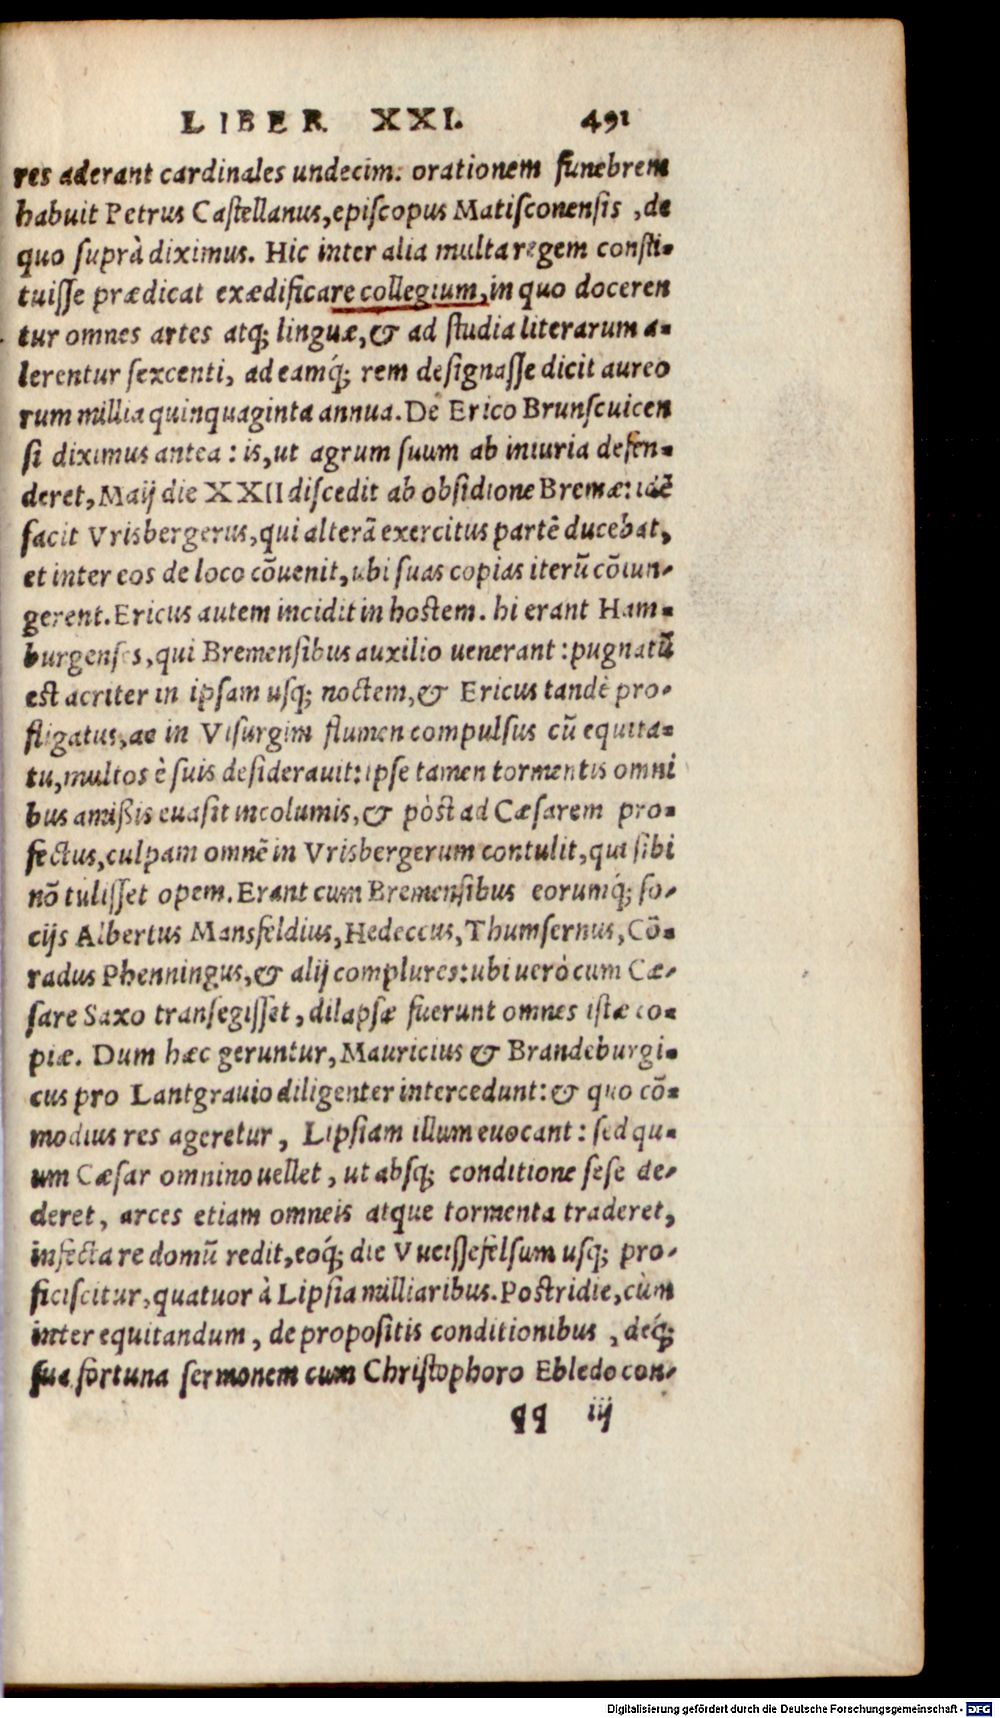 LIBER XXI. 491
res aderant cardinales undecim. orationem funebrem
habuit Petrus Caſtellanus, epiſcopus Matiſconenſis , de
quo ſuprà diximus. Hic inter alia multa regem conſti-
tuiſſe prædicat exædificare collegium, in quo doceren
tur omnes artes atq; linguæ, & ad ſtudia literarum a-
lerentur ſexcenti, ad eamq́; rem deſignaſſe dicit aureo
rum millia quinquaginta annua. De Erico Brunſcuicen
ſi diximus antea : is, ut agrum ſuum ab iniuria defen-
deret, Maij die XXII diſcedit ab obſidione Bremæ: idē
facit Vrisbergerus, qui alterā exercitus partē ducebat,
et inter eos de loco cōuenit, ubi ſuas copias iterū cōiun-
gerent. Ericus autem incidit in hoſtem. hi erant Ham-
burgenſes, qui Bremenſibus auxilio uenerant : pugnatū
eſt acriter in ipſam uſq; noctem, & Ericus tandē pro-
fligatus, ac in Viſurgim flumen compulſus cū equita-
tu, multos è ſuis deſiderauit: ipſe tamen tormentis omni
bus amißis euaſit incolumis, & pòſt ad Cæſarem pro-
fectus, culpam omnē in Vrisbergerum contulit, qui ſibi
nō tuliſſet opem. Erant cum Bremenſibus eorumq́; ſo-
cijs Albertus Mansfeldius, Hedeccus, Thumſernus, Cō-
radus Phenningus, & alij complures: ubi uerò cum Cæ-
ſare Saxo tranſegiſſet , dilapſæ fuerunt omnes iſtæ co-
piæ. Dum hæc geruntur, Mauricius & Brandeburgi-
cus pro Lantgrauio diligenter intercedunt: & quo cō-
modius res ageretur , Lipſiam illum euocant : ſed qu-
um Cæſar omnino uellet , ut abſq; conditione ſeſe de-
deret, arces etiam omneis atque tormenta traderet,
infecta re domū redit, eoq́; die Vueiſſefelſum uſq; pro-
ficiſcitur, quatuor à Lipſia milliaribus. Poſtridie, cùm
inter equitandum , de propoſitis conditionibus , deq́;
ſua fortuna ſermonem cum Chriſtophoro Ebledo con-
qq iij
Digitalisierung gefördert durch die Deutsche Forschungsgemeinschaft - DFG